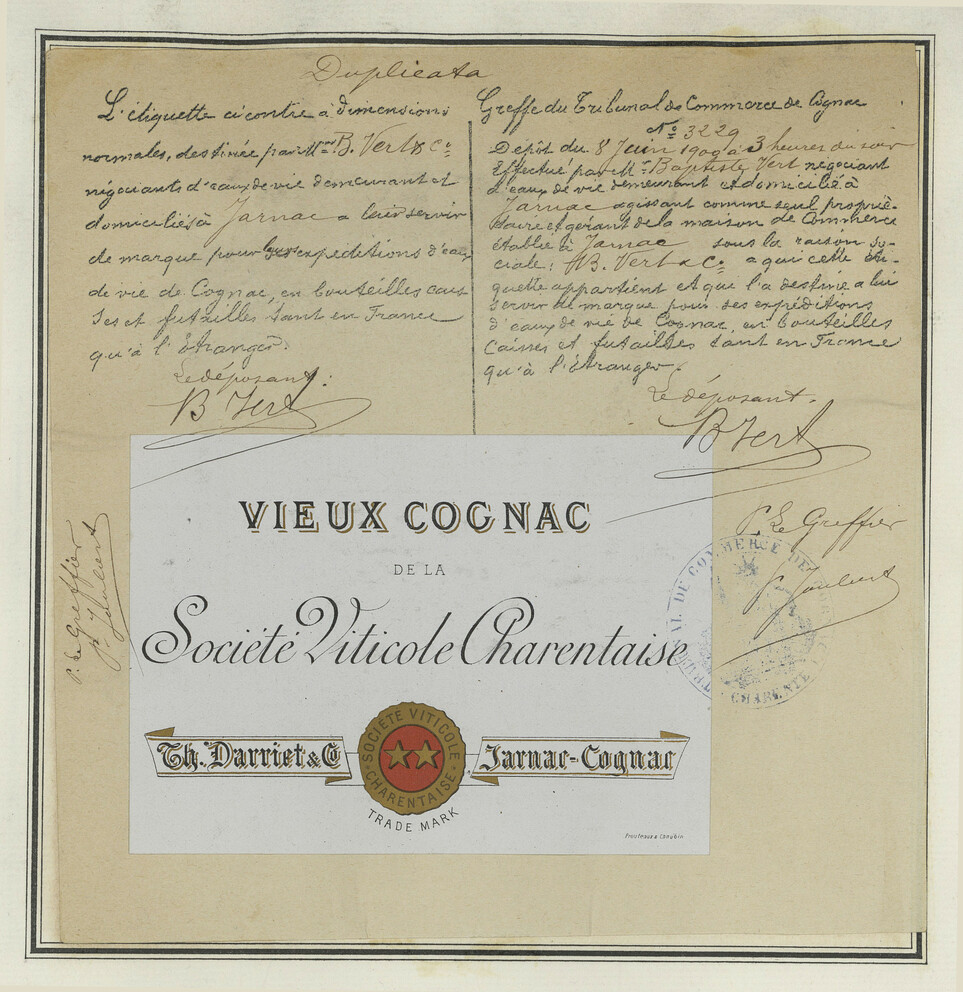 Duplicata
L'étiquette ci contre à dimensions
normales, destinée par Mrs B. Vert & Co
négociants d'eaux de vie demeurant et
domiciliés à Jarnac a leur servir
de marque pour leurs expeditions d'eaux
de vie de Cognac, en bouteilles cais
ses et futailles tant en France
qu'à l'Étranger.
Le déposant:
B Vert
Greffe du Tribunal de Commerce de Cognac
No 3229
Depôt du 8 Juin 1909 à 3 heures du soir
Effectué par Mr Baptiste Vert négociant
d'eaux de vie demeurant et domicilié à
Jarnac agissant comme seul proprié-
taire et gérant de la maison de Commerce
établie à Jarnac sous la raison so-
ciale: B. Vert & Co a qui cette éti-
quette appartient et que l'a destiné a lui
servir de marque pour ses expéditions
d'eaux de vie de Cognac, en bouteilles
Caisses et futailles tant en France
qu'à l'Étranger.
Le déposant.
B Vert
P. Le Greffier
P. Le Greffier
VIEUX COGNAC
DE LA
Société Viticole Charentaise
Th. Darriet & Co
SOCIÉTÉ VITICOLE
CHARENTAISE
Jarnac-Cognac
TRADE MARK
TRIBUNAL DE COMMERCE DE
CHARENTE